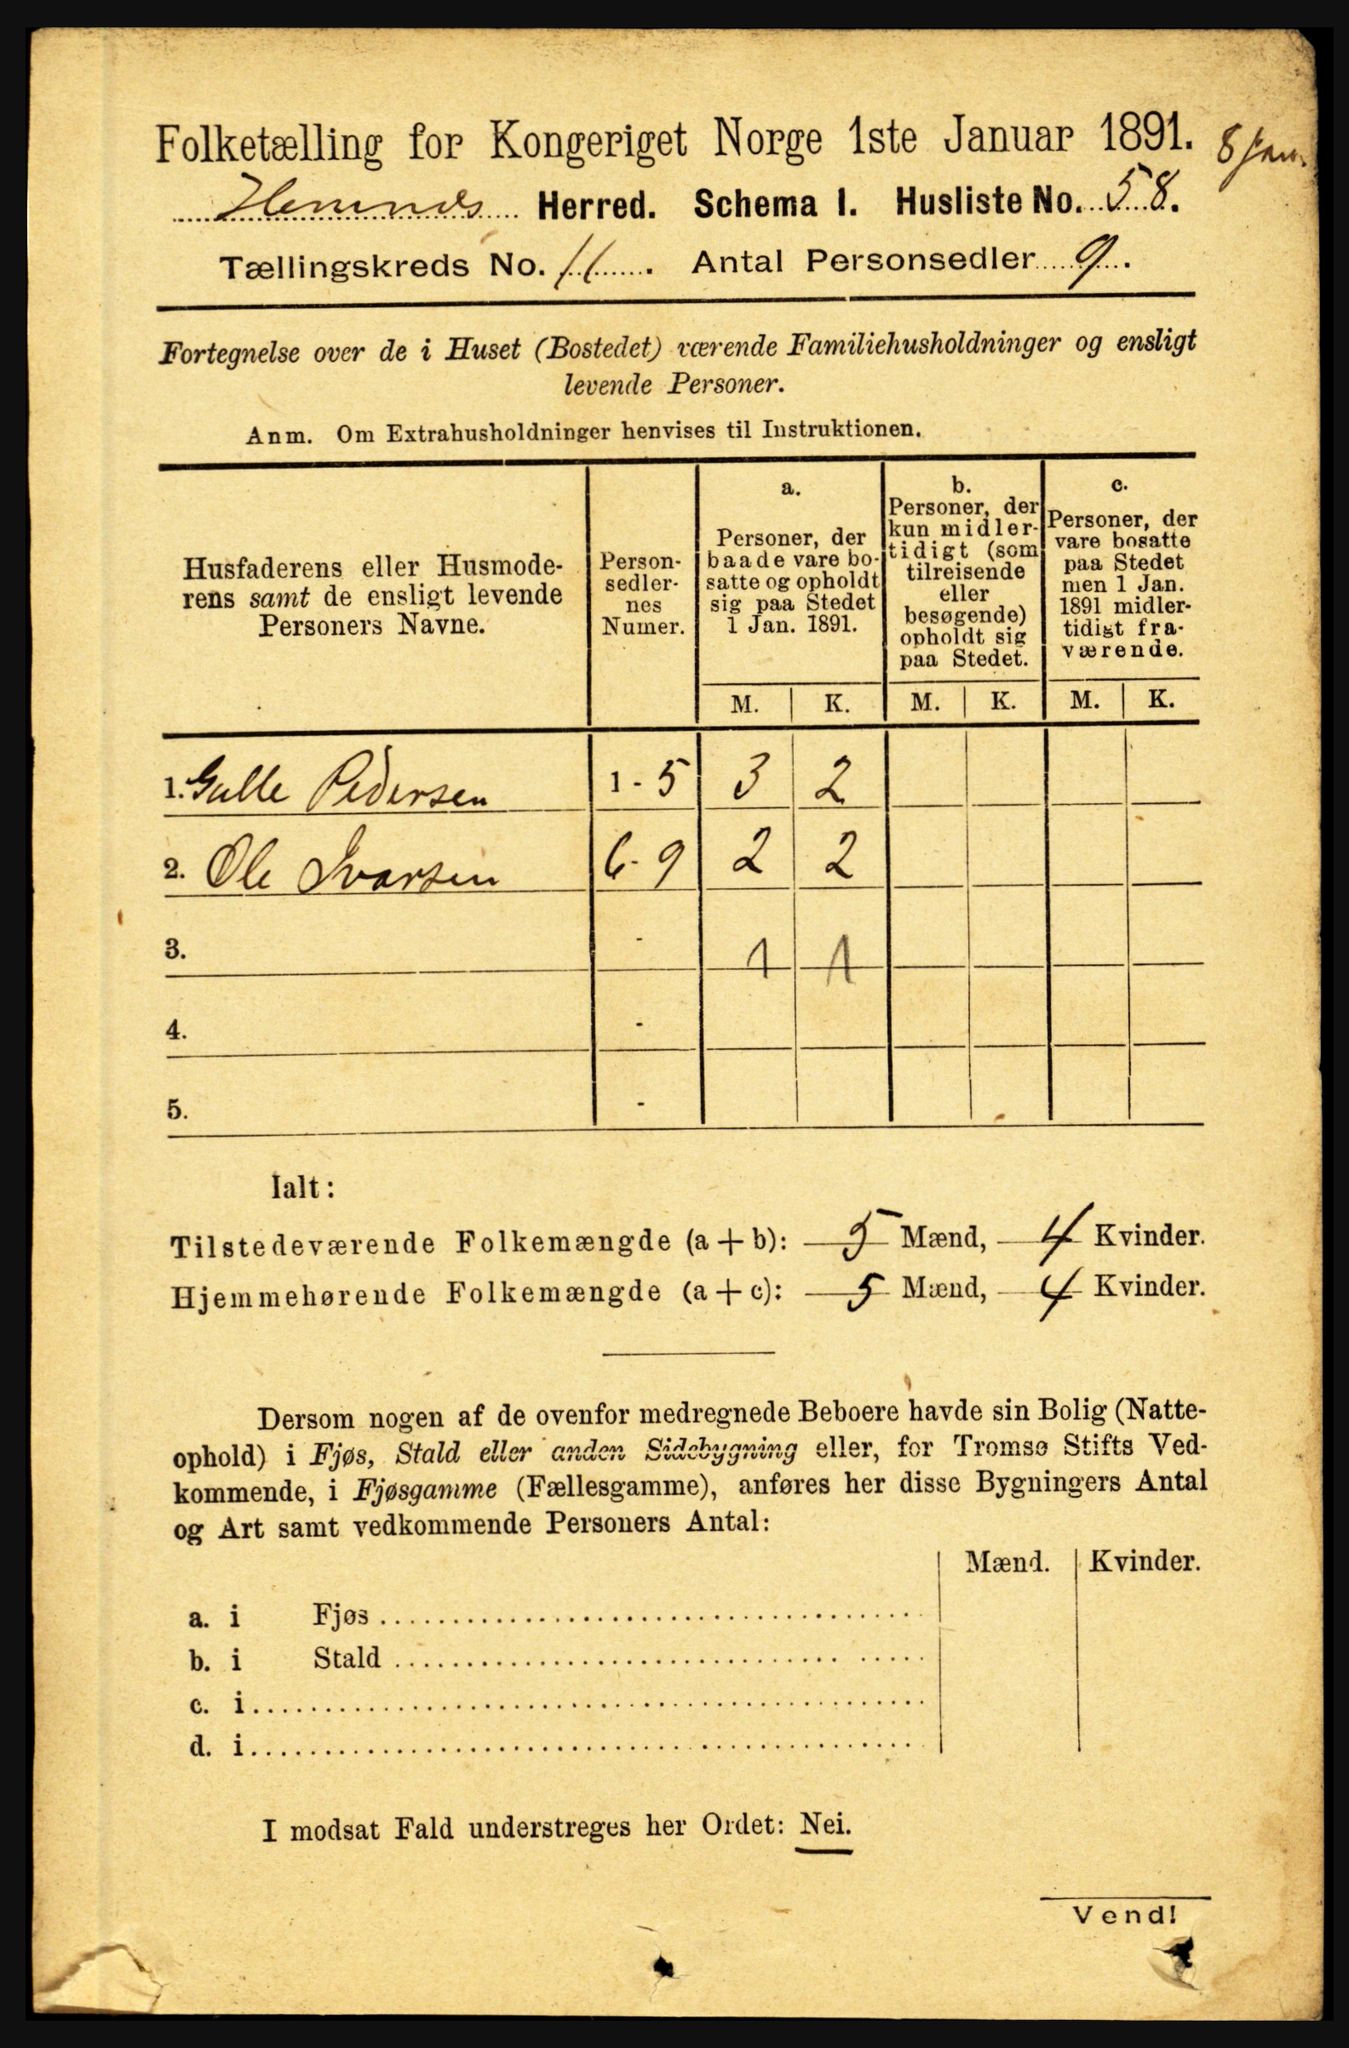 Folketælling for Kongeriget Norge 1ste Januar 1891.
8 Jan.
Hemnes Herred. Schema I. Husliste No. 58.
Tællingskreds No. 11. Antal Personsedler 9.
Fortegnelse over de i Huset (Bostedet) værende Familiehusholdninger og ensligt
levende Personer.
Anm. Om Extrahusholdninger henvises til Instruktionen.
Husfaderens eller Husmode-
rens samt de ensligt levende
Personers Navne.
Person-
sedler-
nes
Numer.
a.
Personer, der
baade vare bo-
satte og opholdt
sig paa Stedet
1 Jan. 1891.
b.
Personer, der
kun midler-
tidigt (som
tilreisende
eller
besøgende)
opholdt sig
paa Stedet.
c.
Personer, der
vare bosatte
paa Stedet
men 1 Jan.
1891 midler-
tidigt fra-
værende.
M. K. M. K. M. K.
1. Gulle Pedersen 1 - 5 3 2
2. Ole Ivarsen 6 - 9 2 2
3. - 1 1
4. -
5. -
Ialt:
Tilstedeværende Folkemængde (a + b): 5 Mænd, 4 Kvinder.
Hjemmehørende Folkemængde (a + c): 5 Mænd, 4 Kvinder.
Dersom nogen af de ovenfor medregnede Beboere havde sin Bolig (Natte-
ophold) i Fjøs, Stald eller anden Sidebygning eller, for Tromsø Stifts Ved-
kommende, i Fjøsgamme (Fællesgamme), anføres her disse Bygningers Antal
og Art samt vedkommende Personers Antal:
Mænd. Kvinder.
a. i Fjøs
b. i Stald
c. i
d. i
I modsat Fald understreges her Ordet: Nei.
Vend!